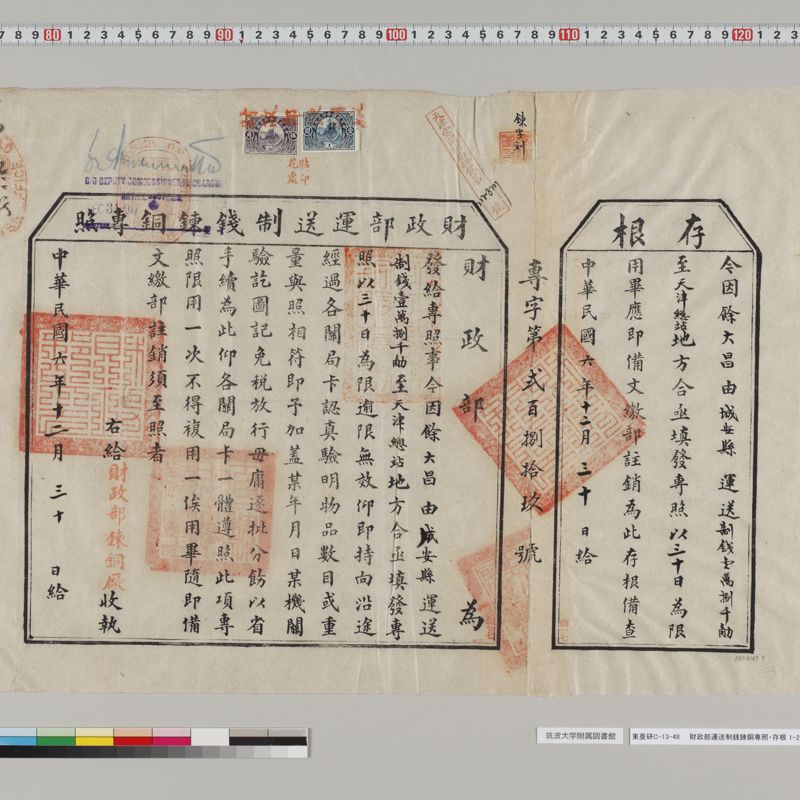 存根
令因餘大昌由城安縣運送制錢壹萬捌千觔
至天津總站地方合亟填發專照以三十日為限
用畢應即備文繳部註銷為此存根備查
中華民國六年十二月三十日給
專字第弍百捌拾玖號
財政部運送制錢鍊銅專照
財政部為
發給專照事令因餘大昌由成安縣運送
制錢壹萬捌千觔至天津總站地方合亟填發專
照以三十日為限逾限無效仰即持向沿途
經過各關局卡認真驗明物品數目或重
量與照相符即予加蓋某年月日某機關
驗訖圖記免稅放行毋庸逐批分飭以省
手續為此仰各關局卡一體遵照此項專
照限用一次不得複用一俟用畢隨即備
文繳部註銷須至照者
右給財政部鍊銅廠收執
中華民國六年十二月三十日給
鍊字列
貼印
花處
D/O DEPUTY COMMISSIONER IN CHARGE
筑波大学附属図書館
東亜研C-13-48 財政部運送制銭錬銅専照・存根 1-2